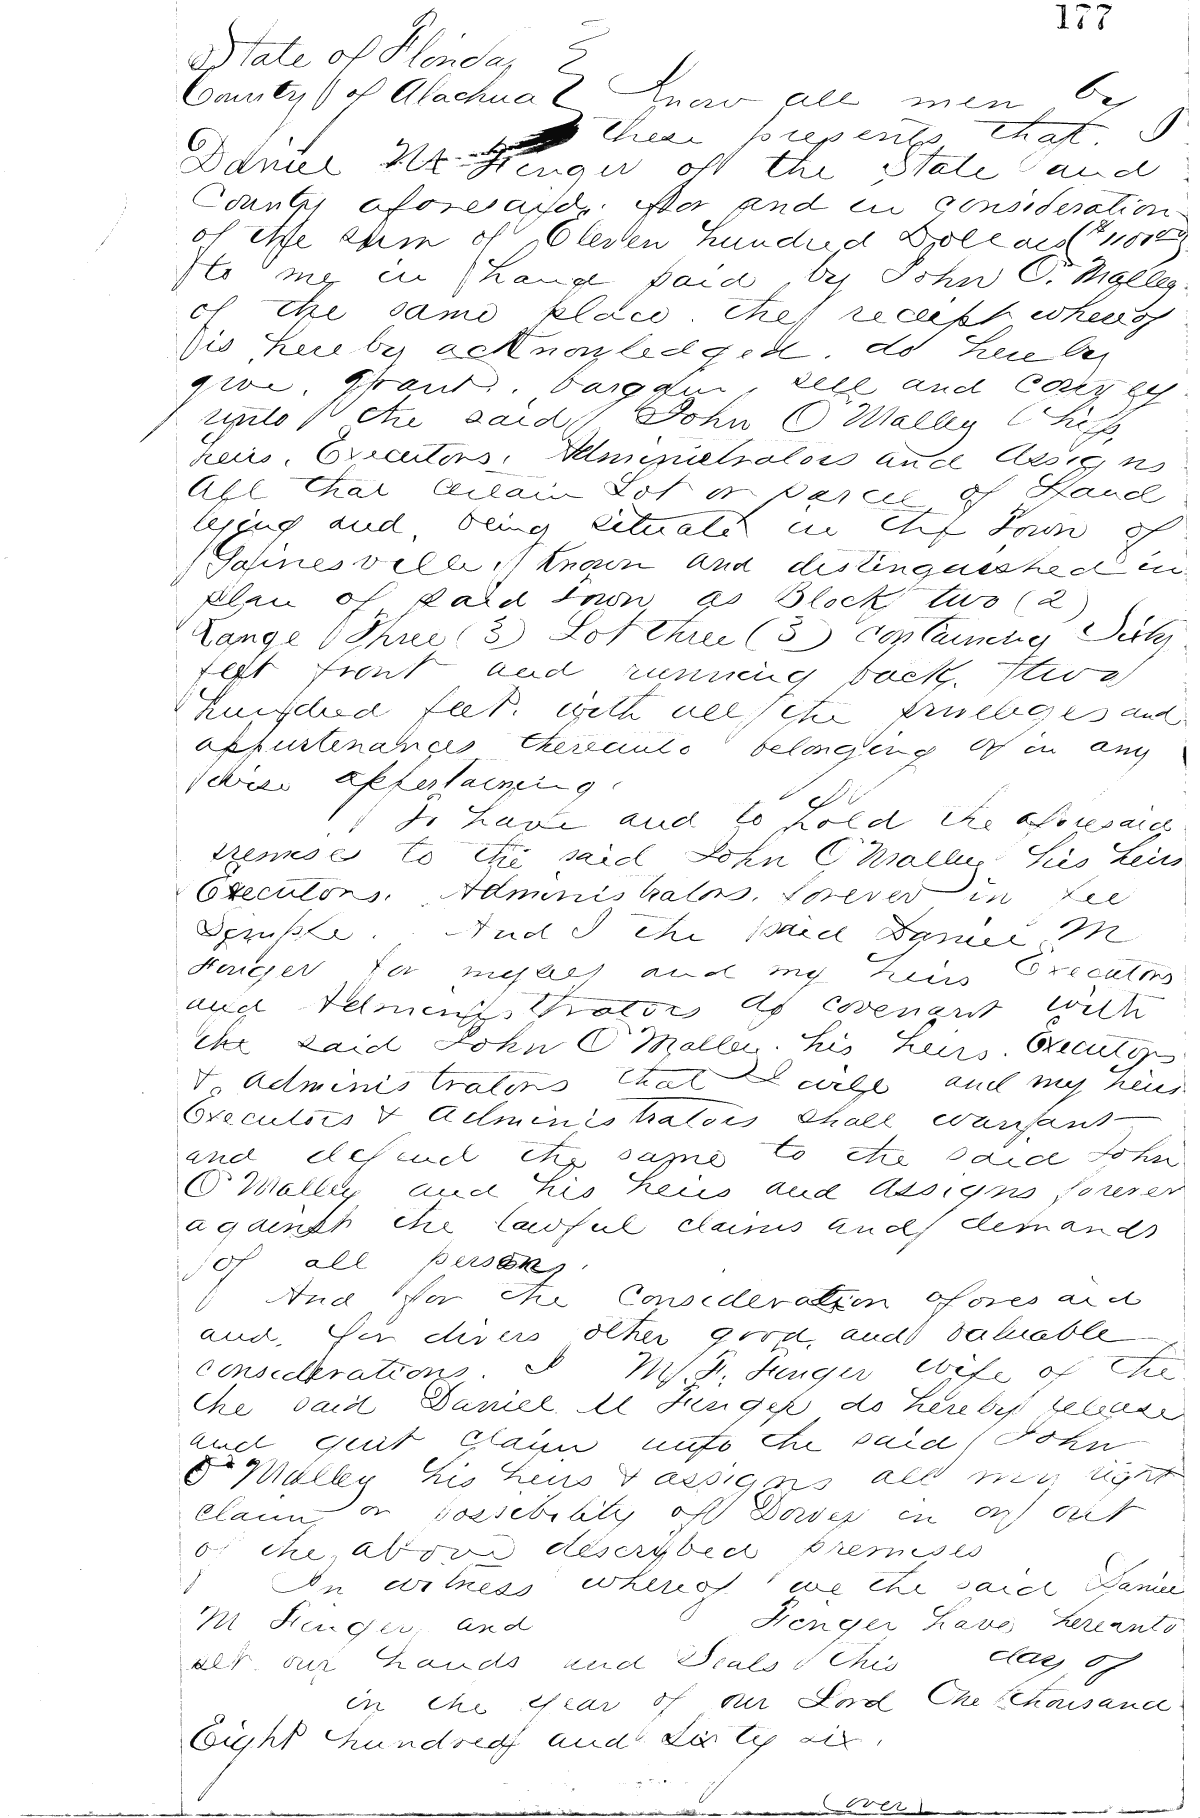 177
State of Florida,
County of Alachua } Know all men by
these presents that I
Daniel M. Finger of the State and
County aforesaid. for and in consideration
of the sum of Eleven hundred Dollars ($1100.00)
to me in hand paid by John O'Malley
of the same place. the receipt whereof
is hereby acknowledged. do hereby
give, grant, bargain, sell and convey
unto the said John O'Malley his
heirs, Executors, Administrators and Assigns
All that certain Lot or parcel of Land
lying and being situate in the Town of
Gainesville, known and distinguished in
plan of said Town as Block two (2)
Range Three (3) Lot three (3) containing Sixty
feet front and running back two
hundred feet. with all the privileges and
appurtenances thereunto belonging or in any
wise appertaining.
To have and to hold the aforesaid
premises to the said John O'Malley his heirs
Executors. Administrators. forever in fee
Simple. And I the said Daniel M
Finger for myself and my heirs Executors
and Administrators do covenant with
the said John O'Malley. his heirs. Executors
& administrators that I will and my heirs
Executors & administrators shall warrant
and defend the same to the said John
O'Malley and his heirs and assigns forever
against the lawful claims and demands
of all persons.
And for the Consideration aforesaid
and, for divers other good, and valuable
considerations. I M. F. Finger wife of the
the said Daniel M Finger do hereby release
and quit claim unto the said John
O'Malley his heirs & assigns all my right
claim or possibility of Dower in or out
of the above described premises
In witness whereof we the said Daniel
M Finger and Finger have hereunto
set our hands and Seals this day of
in the year of our Lord One thousand
Eight hundred and Sixty six.
(over)